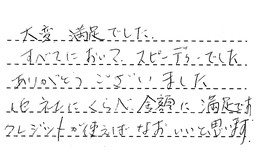 大変 満足でした。
すべてにおいて、スピーディーでした
ありがとうございました
他社にくらべ、金額に満足です
クレジットが使えればなおいいと思います。